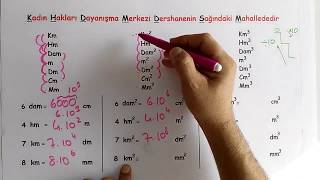 Kadın Hakları Dayanışma Merkezi Dershanenin Sağındaki Mahallededir
Km
Hm
Dam
m
Dm
Cm
Mm 10³
Hm²
Dam²
m²
Dm²
Cm²
Mm²
Km³
Hm³
Dam³
m³
Dm³
Cm³
Mm³
6 dam = 6000 cm
6.10³
4 hm = 4.10² m
7 km = 7.10⁴ dm
8 km = 8.10⁶ mm
6 dam² = 6.10⁶ cm²
4 hm² = 4.10⁴ m²
7 km² = 7.10⁸ dm²
8 km² = mm²
6 dam³ = cm³
4 hm³ = m³
7 km³ = dm³
8 km³ = mm³